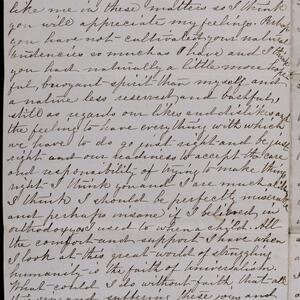 like me in these matters so I think
you will appreciate my feelings. Perhaps
you have not cultivated your native
tendencies so much as I have and I think
you had naturally a little more hope
ful, buoyant spirit than myself and
a native less reserved and bashful,
still as regards our likes and dislikes and
the feeling to have everything with which
we have to do go just right and be just
right and our readiness to accept the care
and responsibility of trying to make things
right I think you and I are much alike
I think I should be perfectly miserable
and perhaps insane if I believed in
orthodoxy as I used to when a child. All
the comfort and support I have when
I look at this great world of struggling
humanity is the faith of Universalism.
What could I do without faith, that all
the and suffering these you and